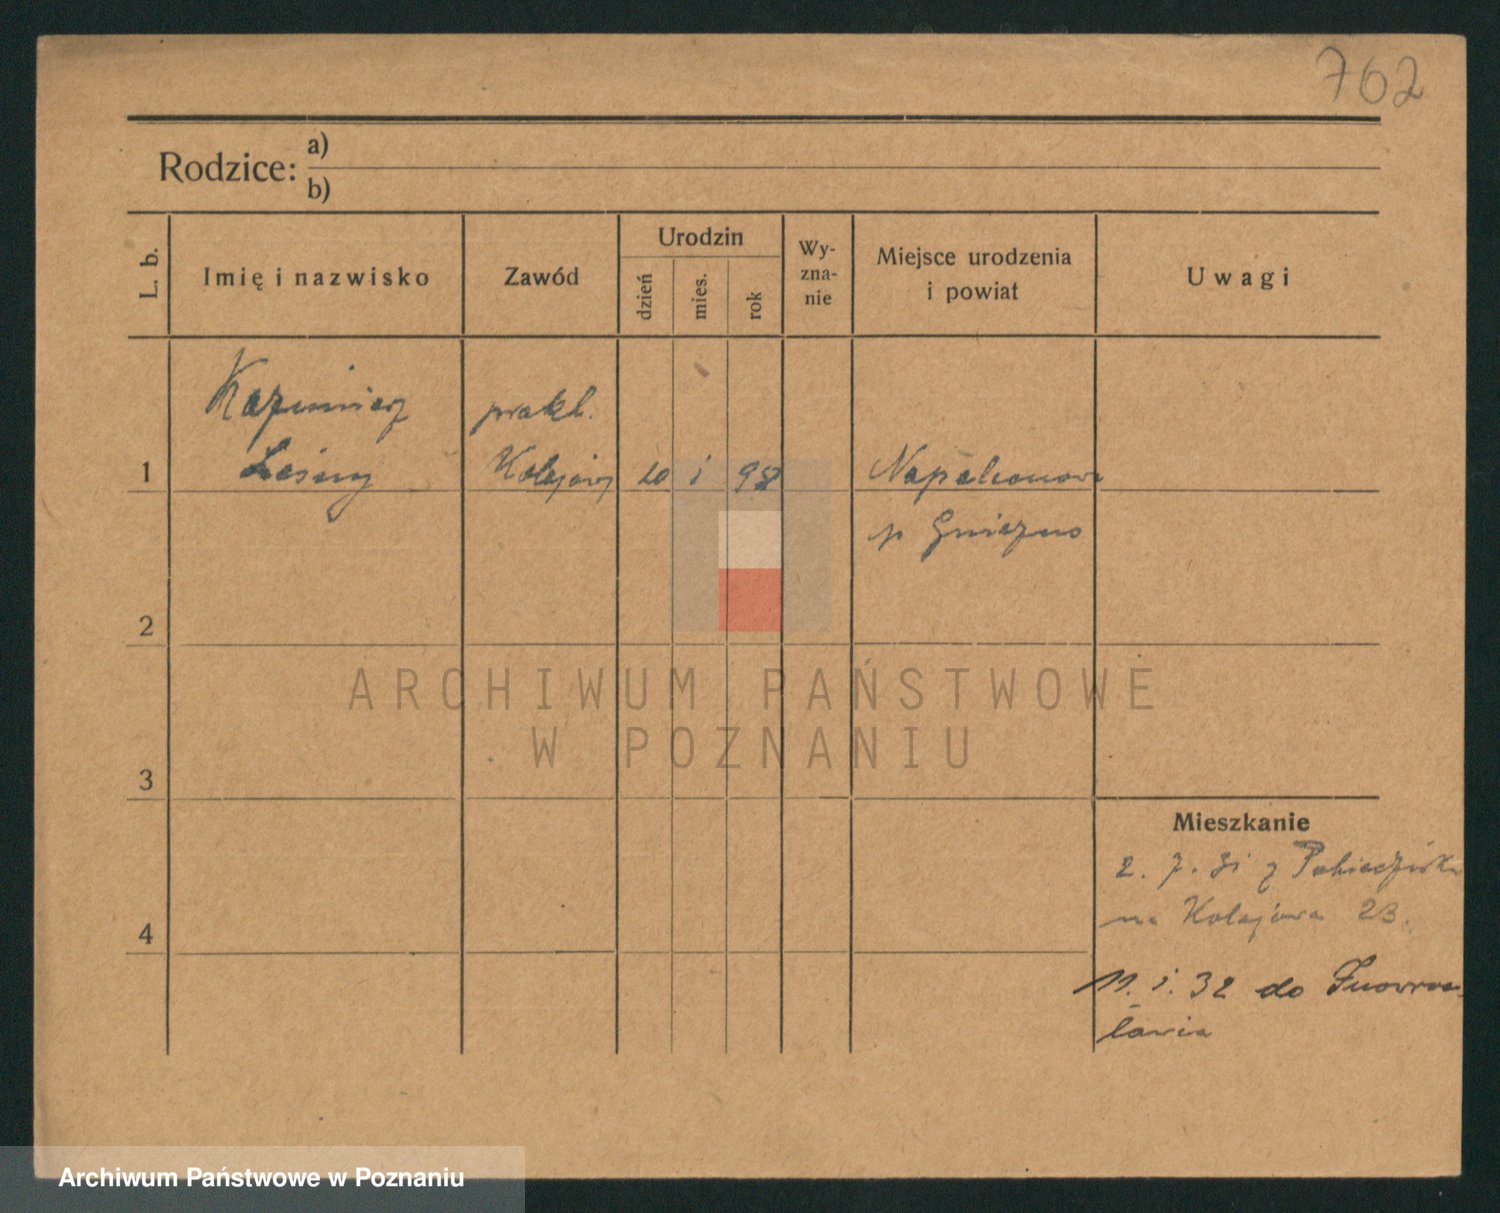 762
Rodzice: a)
b)
L. b.
Imię i nazwisko
Zawód
Urodzin
dzień
mies.
rok
Wy-
zna-
nie
Miejsce urodzenia
i powiat
Uwagi
Kazimierz
Leśny
prakt.
Kolejowy
20 i 98
Napoleonowo
p Gniezno
1
2
3
4
Mieszkanie
2. 7. 31 z Pobiedziska
na Kolejowa 23.
11. i. 32 do Inowroc-
ławia
ARCHIWUM PAŃSTWOWE
W POZNANIU
Archiwum Państwowe w Poznaniu